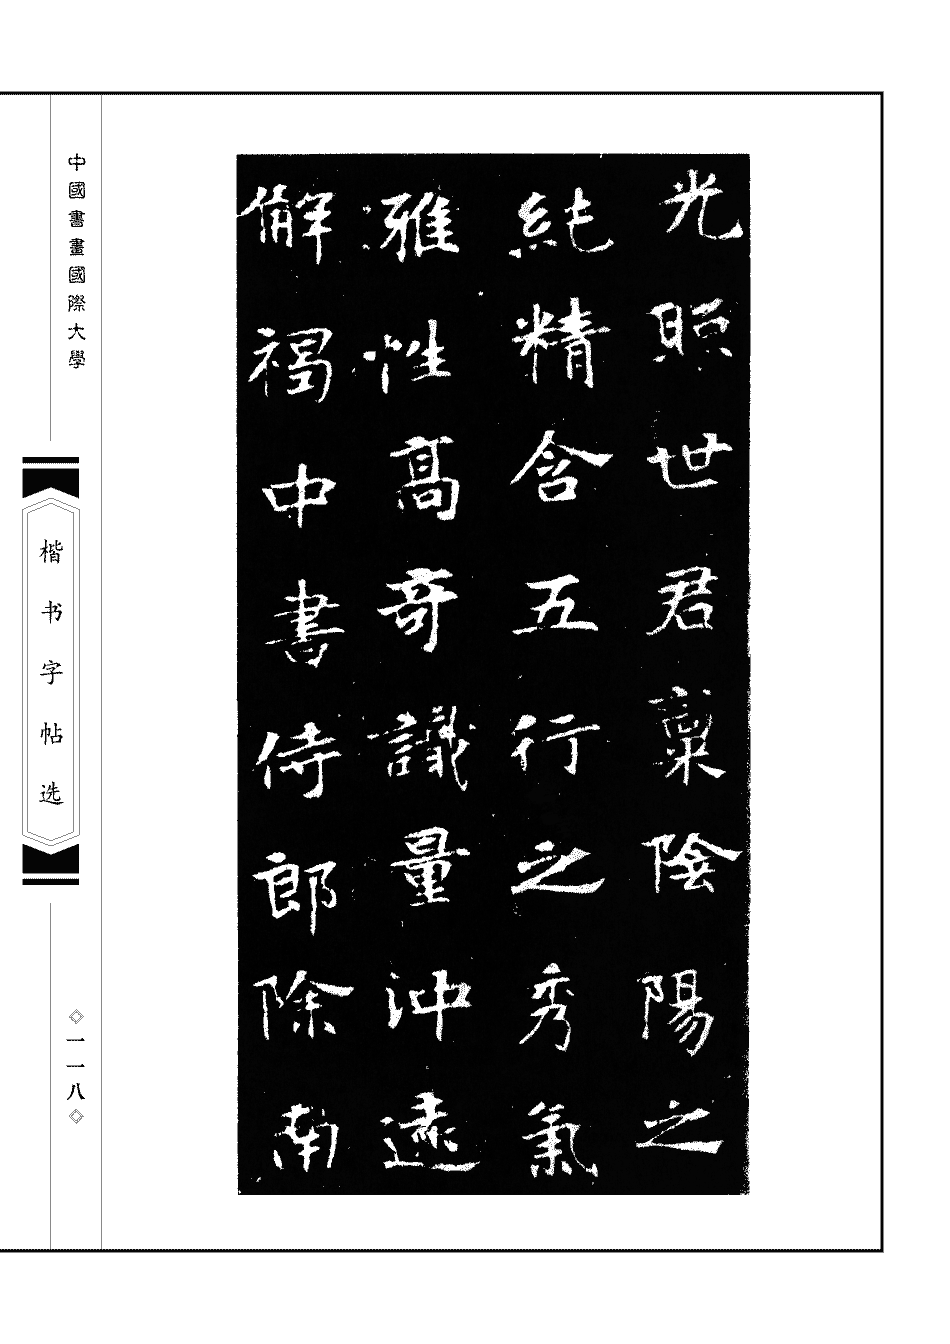 光照世君稟陰陽之
純精含五行之秀氣
雅性髙奇識量沖遠
解褐中書侍郎除南
中國書畫國際大學
楷书字帖选
一一八